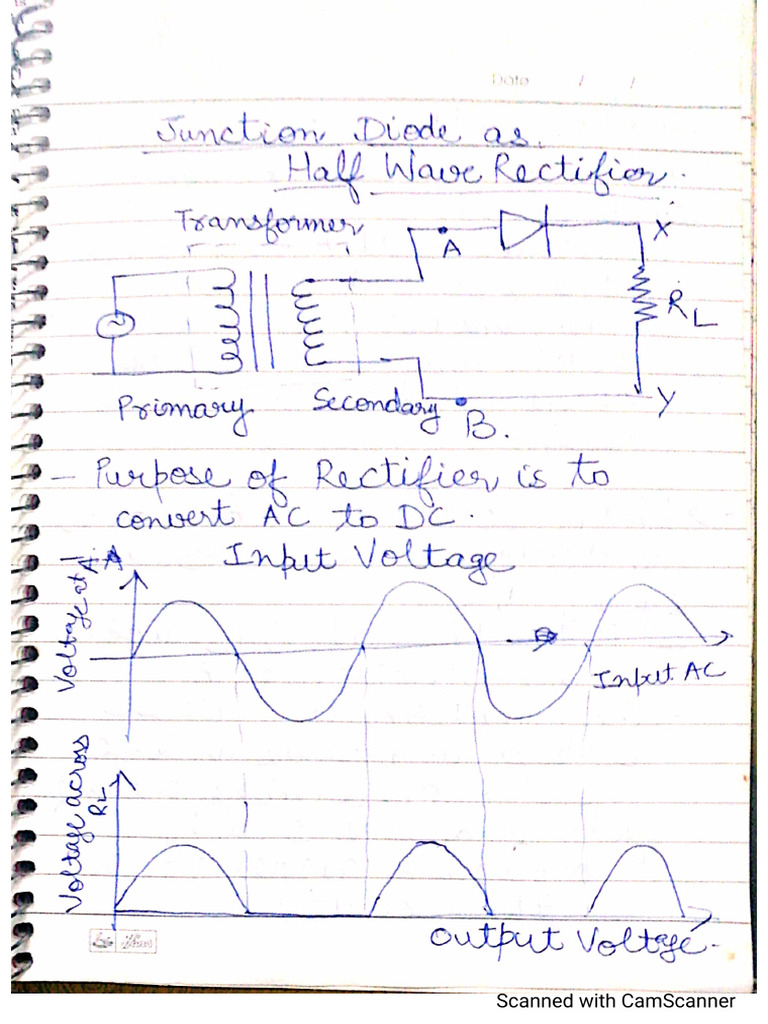 Date / /
Junction Diode as
Half Wave Rectifier.
Transformer
A
X
RL
Primary
Secondary
B.
Y
- Purpose of Rectifier is to
convert AC to DC.
Input Voltage
Voltage at A
Input AC
Voltage across
RL
Output Voltage.
Scanned with CamScanner